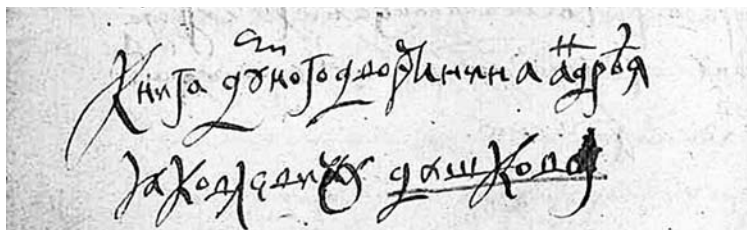 Книга думного дворянина андрѣя
Яковлевича дашкова